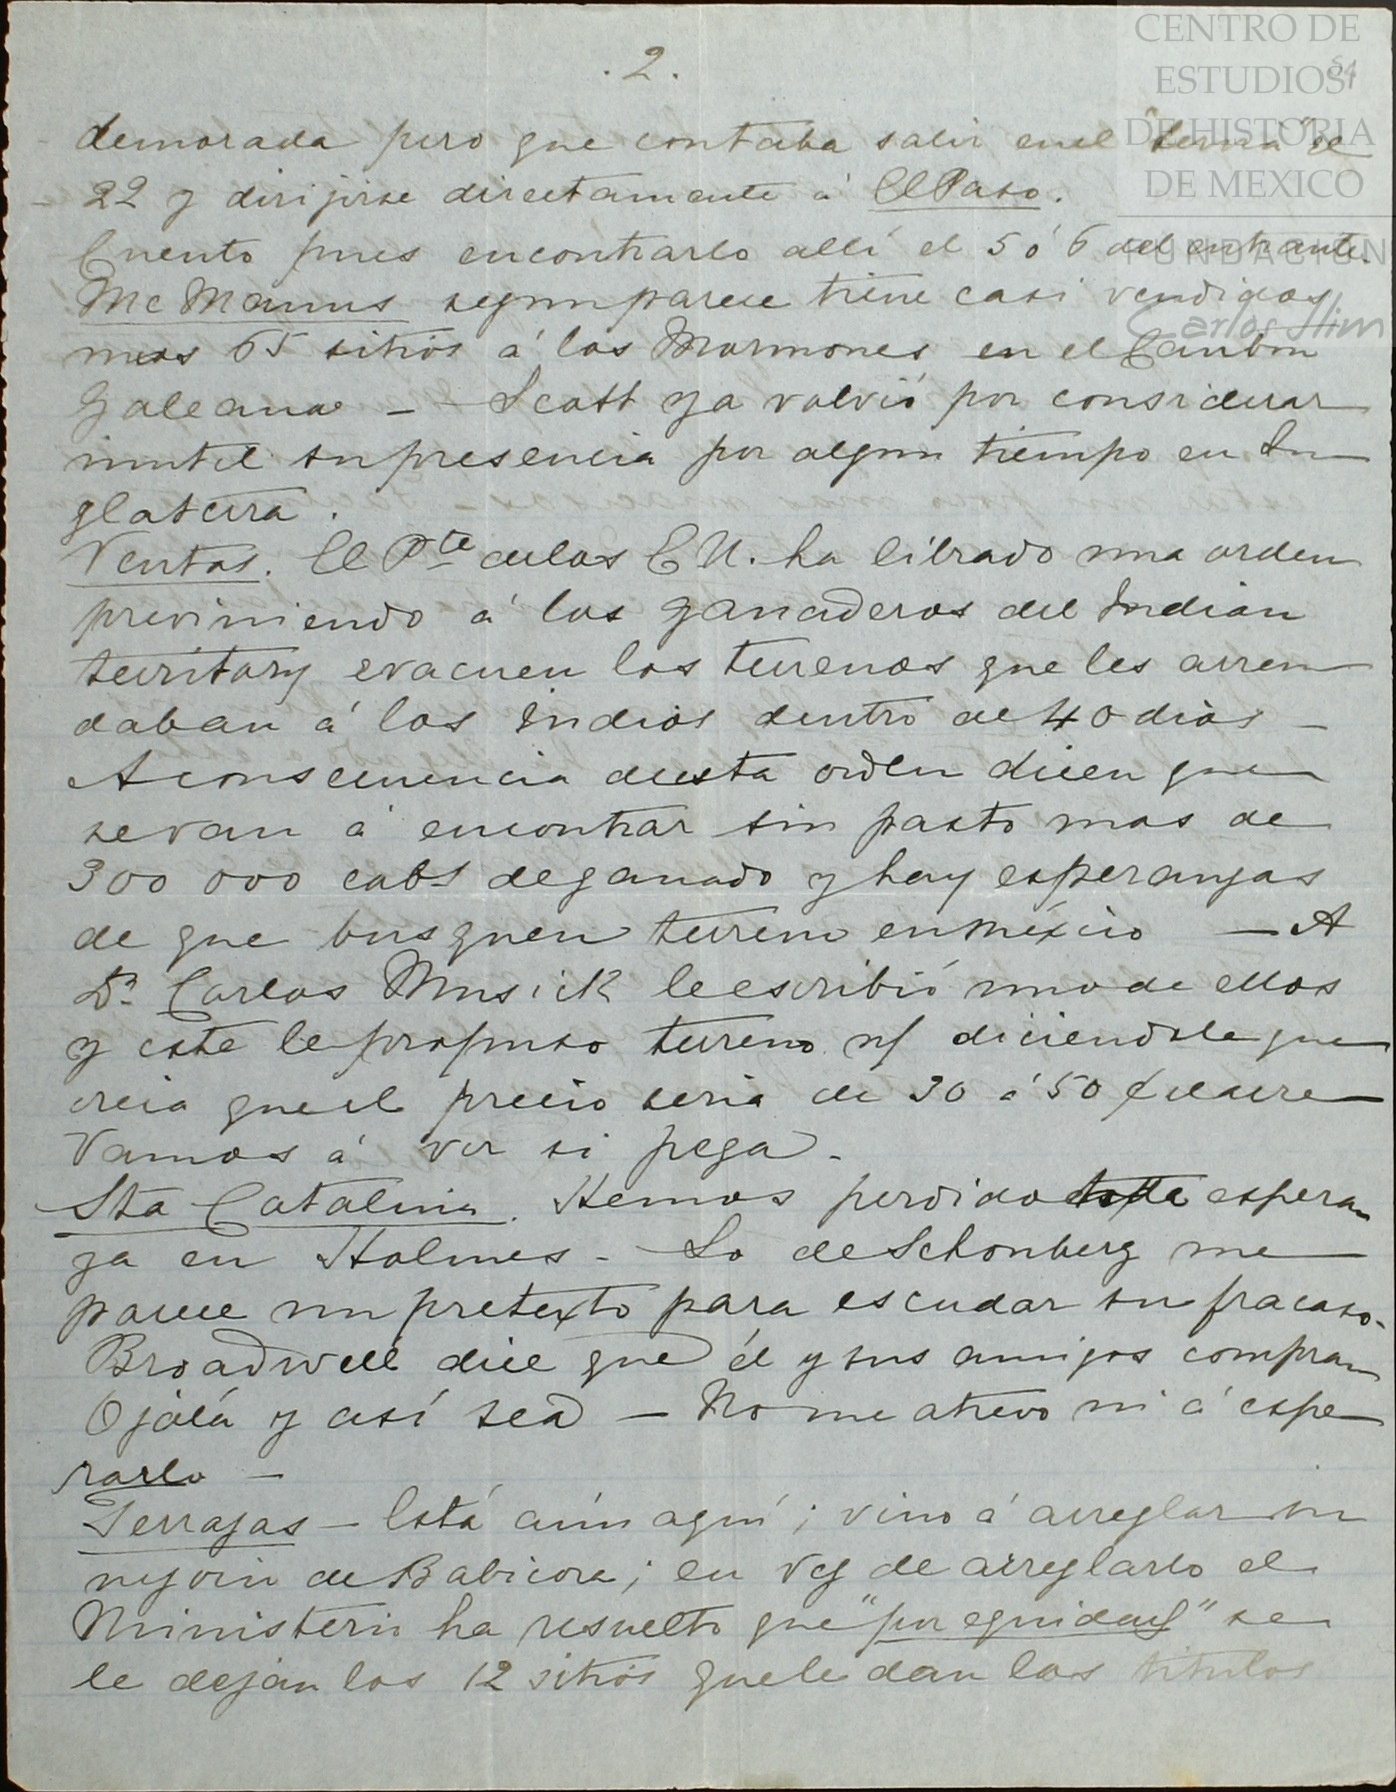 .2.
54
CENTRO DE
ESTUDIOS
DE HISTORIA
DE MEXICO
FUNDACIÓN
Carlos Slim
demorada pero que contaba salir en el "Servia" el
22 y dirijirse directamente á El Paso.
Cuento pues encontrarlo allí el 5 ó 6 del entrante.
McManus segun parece tiene casi vendidos
mas 65 sitios á los Mormones en el Canton
Galeana — Scott ya volvió por considerar
inutil su presencia por algun tiempo en In
glaterra.
Ventas. El Pte de los E U. ha librado una orden
previniendo á los ganaderos del Indian
territory evacuen los terrenos que les arren
daban á los Indios dentro de 40 dias —
A consecuencia de esta orden dicen que
se van á encontrar sin pasto mas de
300 000 cabs de ganado y hay esperanzas
de que busquen terreno en México — A
Dn Carlos Musick le escribió uno de ellos
y este le propuso terreno n/ diciendole que
creia que el precio seria de 30 á 50 ¢ el acre
Vamos á ver si pega.
Sta Catalina. Hemos perdido toda esperan
za en Holmes — Lo de Schonberg me
parece un pretexto para escudar su fracaso.
Broadwell dice que él y sus amigos compran
Ojalá y así sea — No me atrevo ni á espe
rarlo —
Terrazas — Está aún aquí; vino á arreglar su
negocio de Babicora; en vez de arreglarlo el
Ministerio ha resuelto que "por equidad" se
le dejan los 12 sitios que le dan los titulos